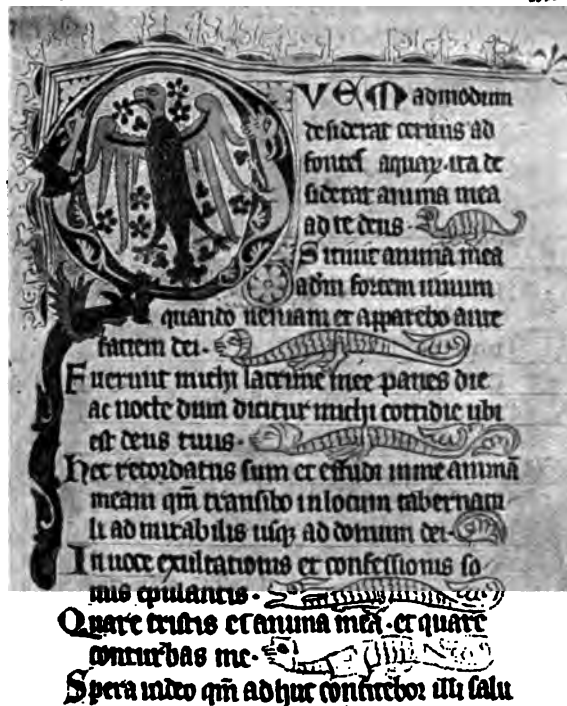 QVEMadmodum
desiderat ceruus ad
fontes aquaꝝ· ita de
siderat anima mea
ad te deus·
Sitiuit anima mea
ad fontem uiuum
quando ueniam et apparebo ante
faciem dei·
Fuerunt michi lacrime mee panes die
ac nocte dum dicitur michi cottidie ubi
est deus tuus·
Hec recordatus sum et effudi in me animā
meam qm̄ transibo in locum tabernacu
li admirabilis usqꝫ ad domum dei·
In uoce exultationis et confessionis so
nus epulantis·
Quare tristis es anima mea· et quare
conturbas me·
Spera in deo qm̄ adhuc confitebor illi salu